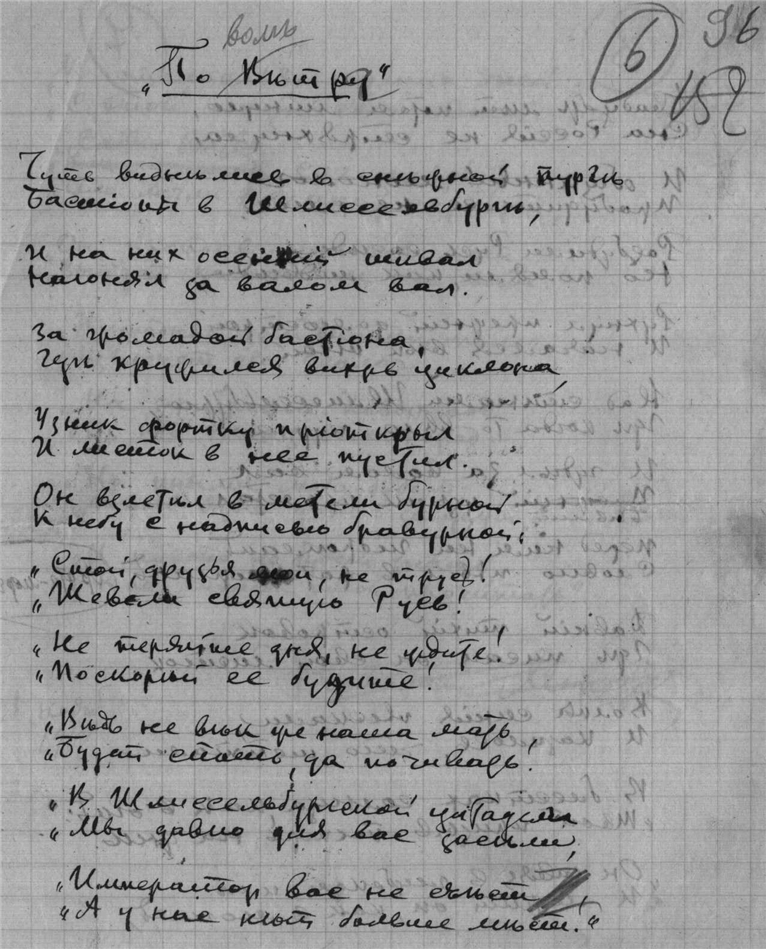 волѣ
6 96
152
„По Вѣтру“
Чуть виднѣлись в снѣжной пургѣ
Бастіоны в Шлиссельбургѣ,
И на них осенній шквал
Нагонял за валом вал.
За громадой бастіона,
Гдѣ кружился вихрь циклона,
Узник фортку пріоткрыл
И листок в нее пустил.
Он взлетѣл в метели бурной
К небу с надписью бравурной:
„Стой, друзья мои, не трусь!
„Шевели святую Русь!
„Не теряйте дня, не ждите!
„Поскорѣй ее будите!
„Вѣдь не вѣк же наша мать,
„Будет спать, да почивать!
„В Шлиссельбургской цитадели
„Мы давно для вас засѣли,
„Император вас не съѣст,
„А у нас нѣт больше мѣст.“